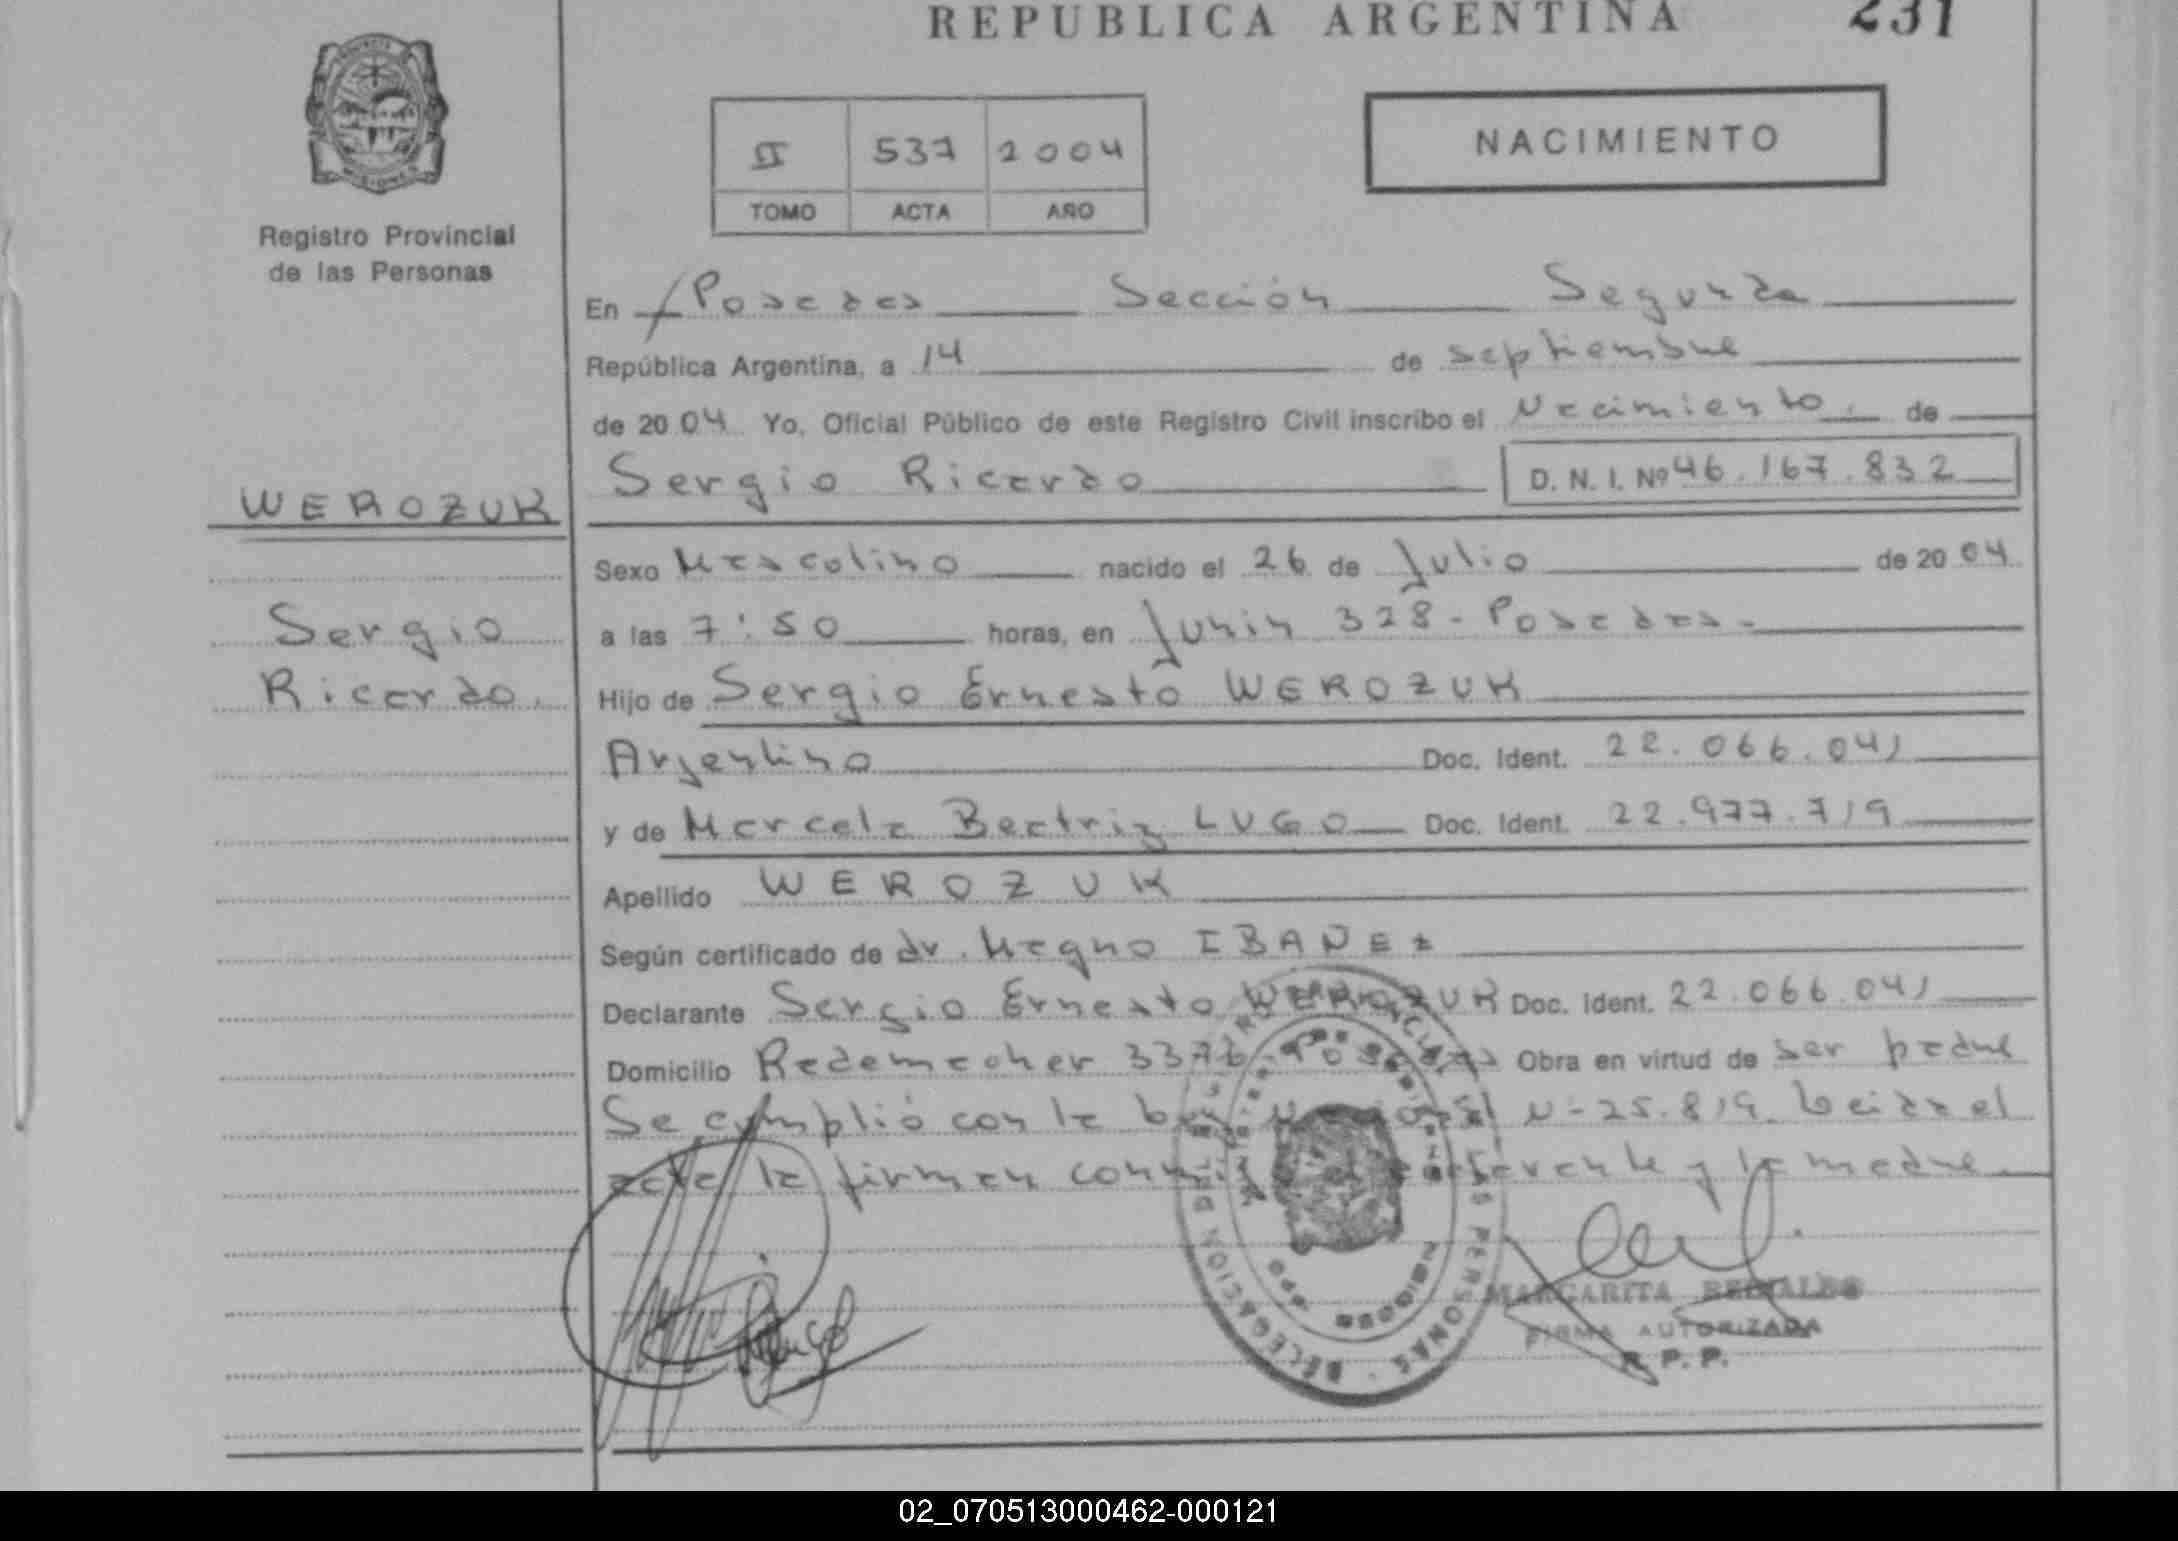 REPUBLICA ARGENTINA 231
PROVINCIA
MISIONES
Registro Provincial
de las Personas
II 537 2004
TOMO ACTA AÑO
NACIMIENTO
En Posadas Sección Segunda
República Argentina, a 14 de septiembre
de 2004 Yo, Oficial Público de este Registro Civil inscribo el Nacimiento. de
WEROZUK
Sergio Ricardo D. N. I. Nº 46.167.832
Sexo Masculino nacido el 26 de Julio de 2004
Sergio
a las 7:50 horas, en Junin 328 - Posadas.-
Ricardo.
Hijo de Sergio Ernesto WEROZUK
Argentino Doc. Ident. 22.066.041
y de Marcela Beatriz LUGO Doc. Ident. 22.977.719
Apellido WEROZUK
Según certificado de dr. Magno IBAÑEZ
Declarante Sergio Ernesto WEROZUK Doc. Ident. 22.066.041
Domicilio 3376 - Posadas Obra en virtud de ser padre
Se cumplió con la Ley Nacional N- 25.819. Leida el
acta la firman conmigo el y la madre
MARGARITA
FIRMA AUTORIZADA
R.P.P.
02_070513000462-000121